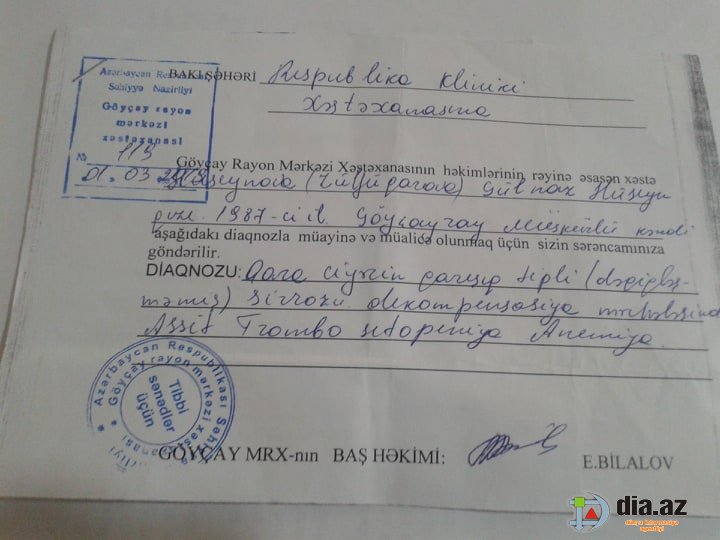 Azərbaycan Respublikası
Səhiyyə Nazirliyi
Göyçay rayon
mərkəzi
xəstəxanası
№ 113
01.03
BAKI ŞƏHƏRİ Respublika Kliniki
Xəstəxanasına
Göyçay Rayon Mərkəzi Xəstəxanasının həkimlərinin rəyinə əsasən xəstə
Hüseynova (Zülfüqarova) Gülnaz Hüseyn
1987-ci il Göyçay ray Müskürlü kəndi
aşağıdakı diaqnozla müayinə və müalicə olunmaq üçün sizin sərəncamınıza
göndərilir.
DİAQNOZU: Qara ciyərin qarışıq tipli (dəqiqləş-
məmiş) sirrozu dekompensasiya mərhələsində
Assit Trombositopeniya Anemiya.
Azərbaycan Respublikası Səhiyyə
Göyçay rayon mərkəzi xəstəxanası
Tibbi
sənədlər
üçün
GÖYÇAY MRX-nın BAŞ HƏKİMİ: E.BİLALOV
dia.az